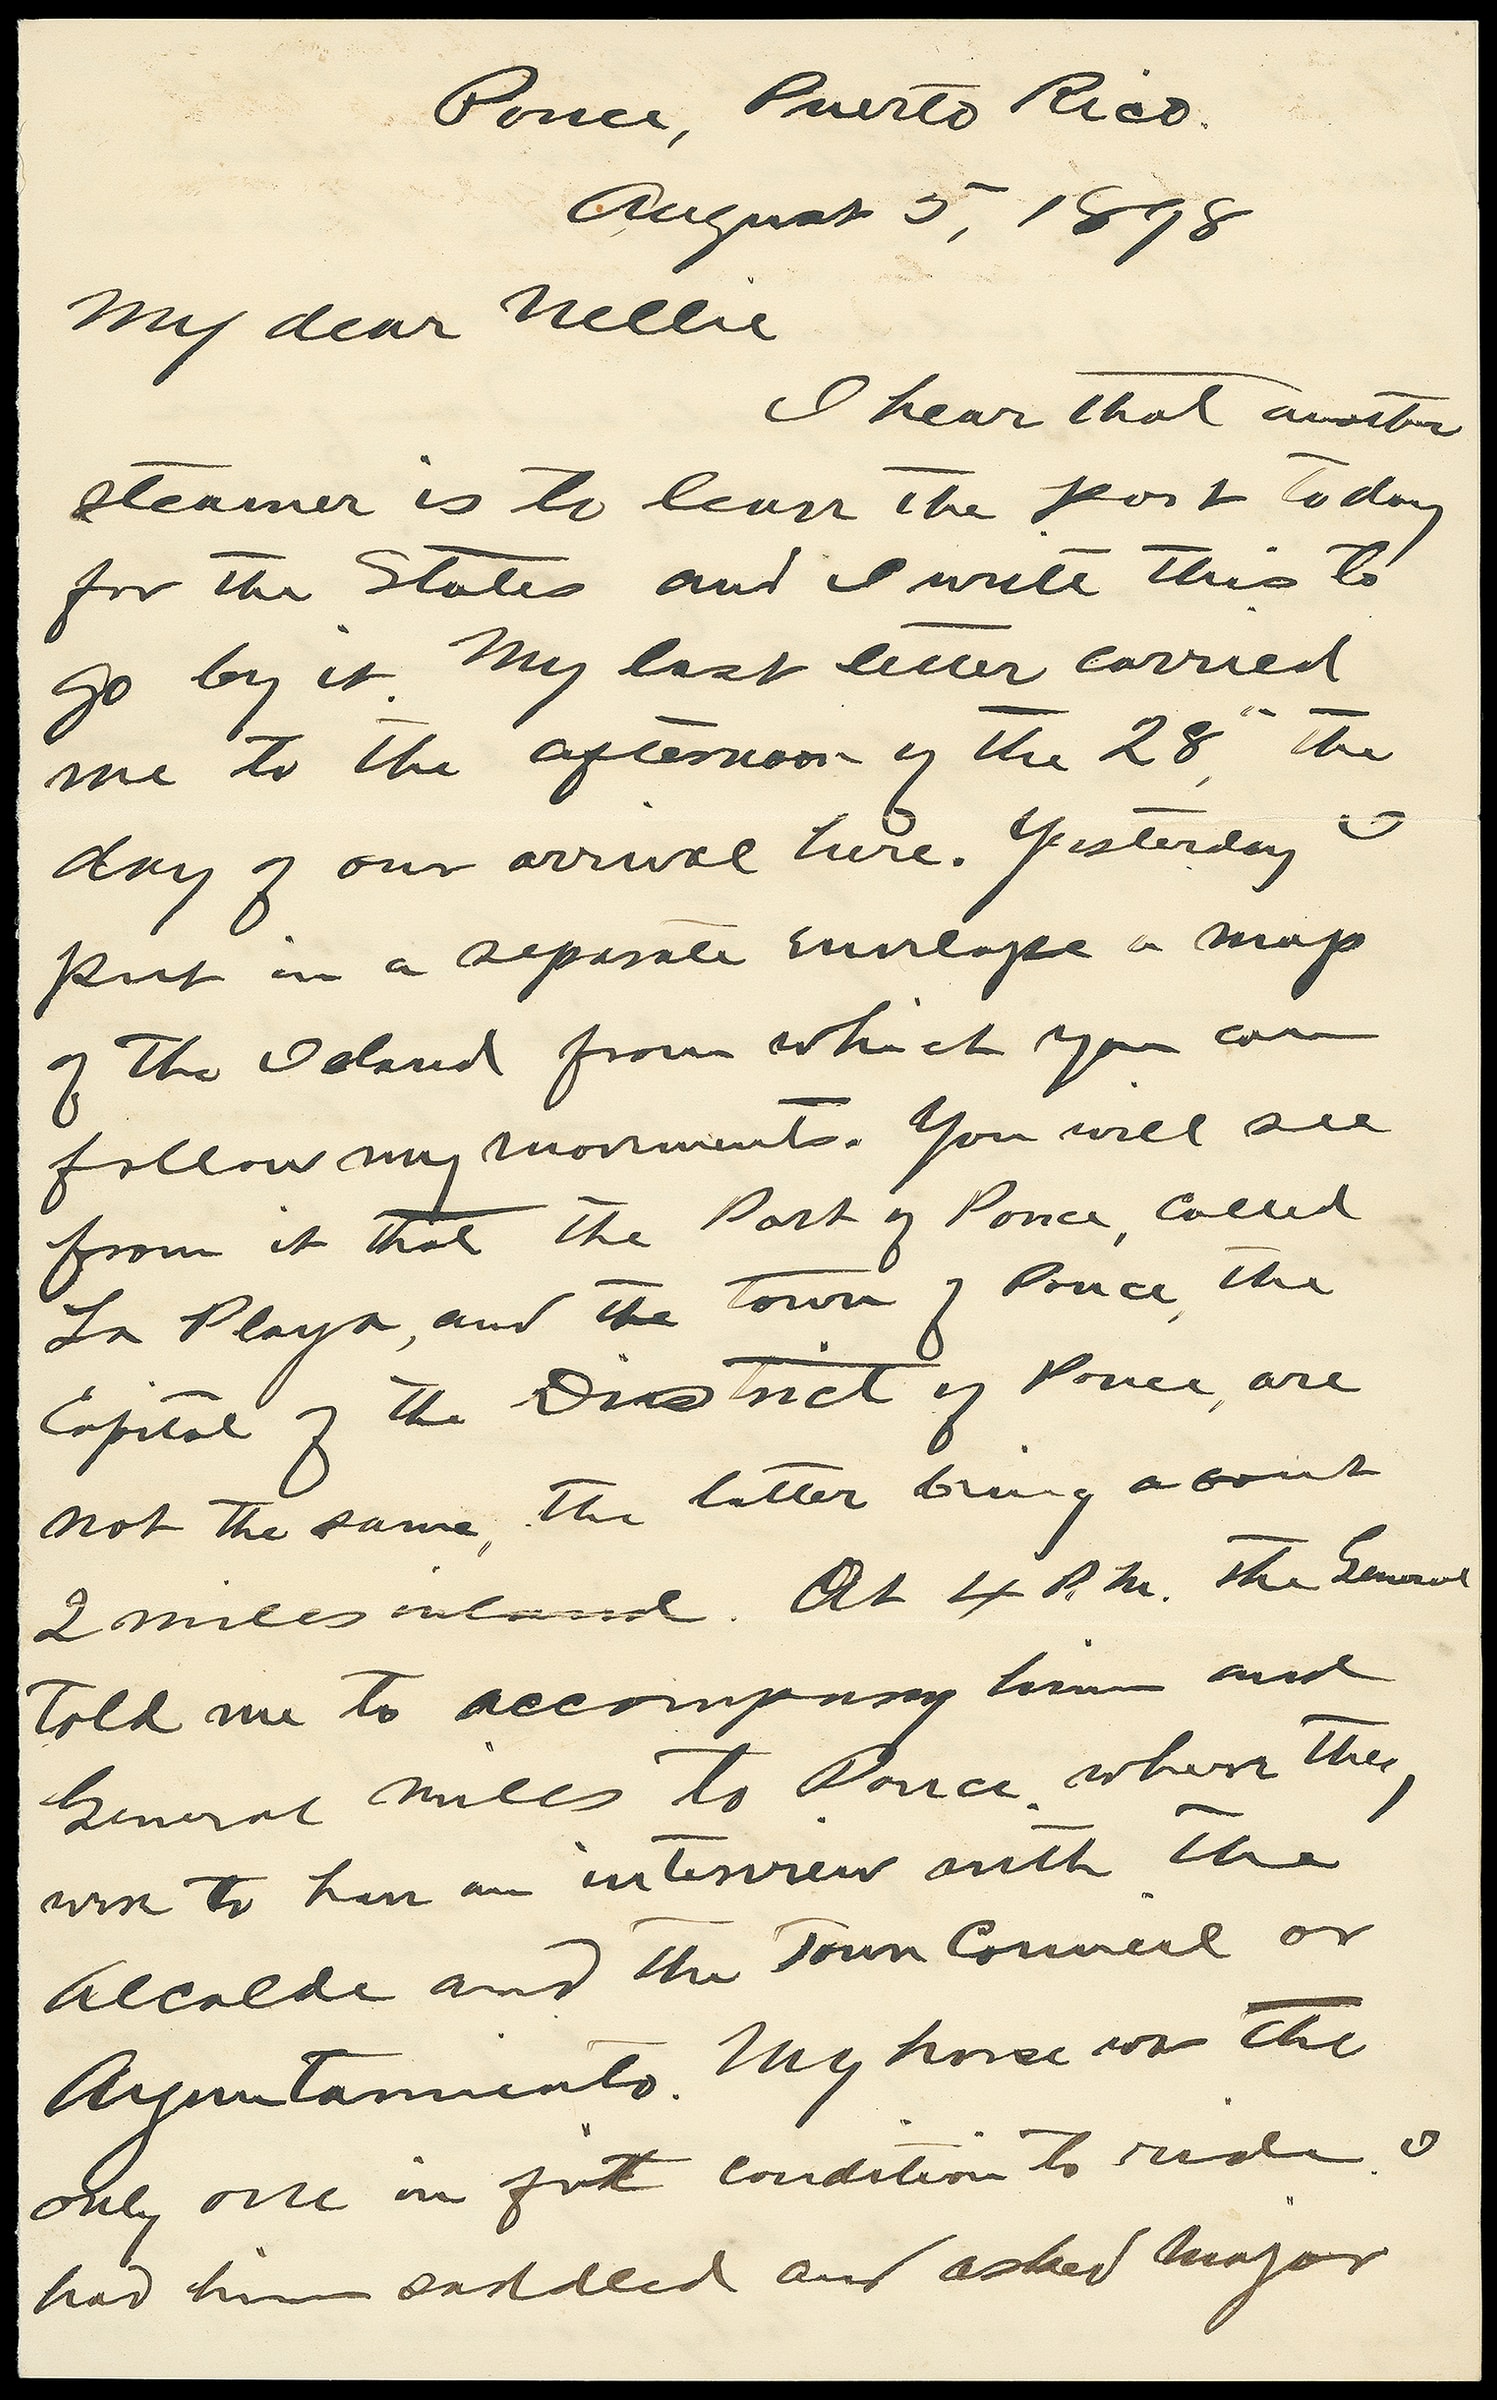 Ponce, Puerto Rico.
August 5, 1898
My dear Nellie
I hear that another
steamer is to leave the port today
for the States and I write this to
go by it. My last letter carried
me to the afternoon of the 28", the
day of our arrival here. Yesterday I
put in a separate envelope a map
of the Island from which you can
follow my movements. You will see
from it that the Port of Ponce, called
La Playa, and the town of Ponce, the
Capital of the District of Ponce, are
not the same, the latter being about
2 miles inland. At 4 P.M. the General
told me to accompany him and
General Miles to Ponce, where they
were to have an interview with the
Alcalde and the Town Council or
Ayuntamiento. My horse was the
only one in fit condition to ride. I
had him saddled and asked Major